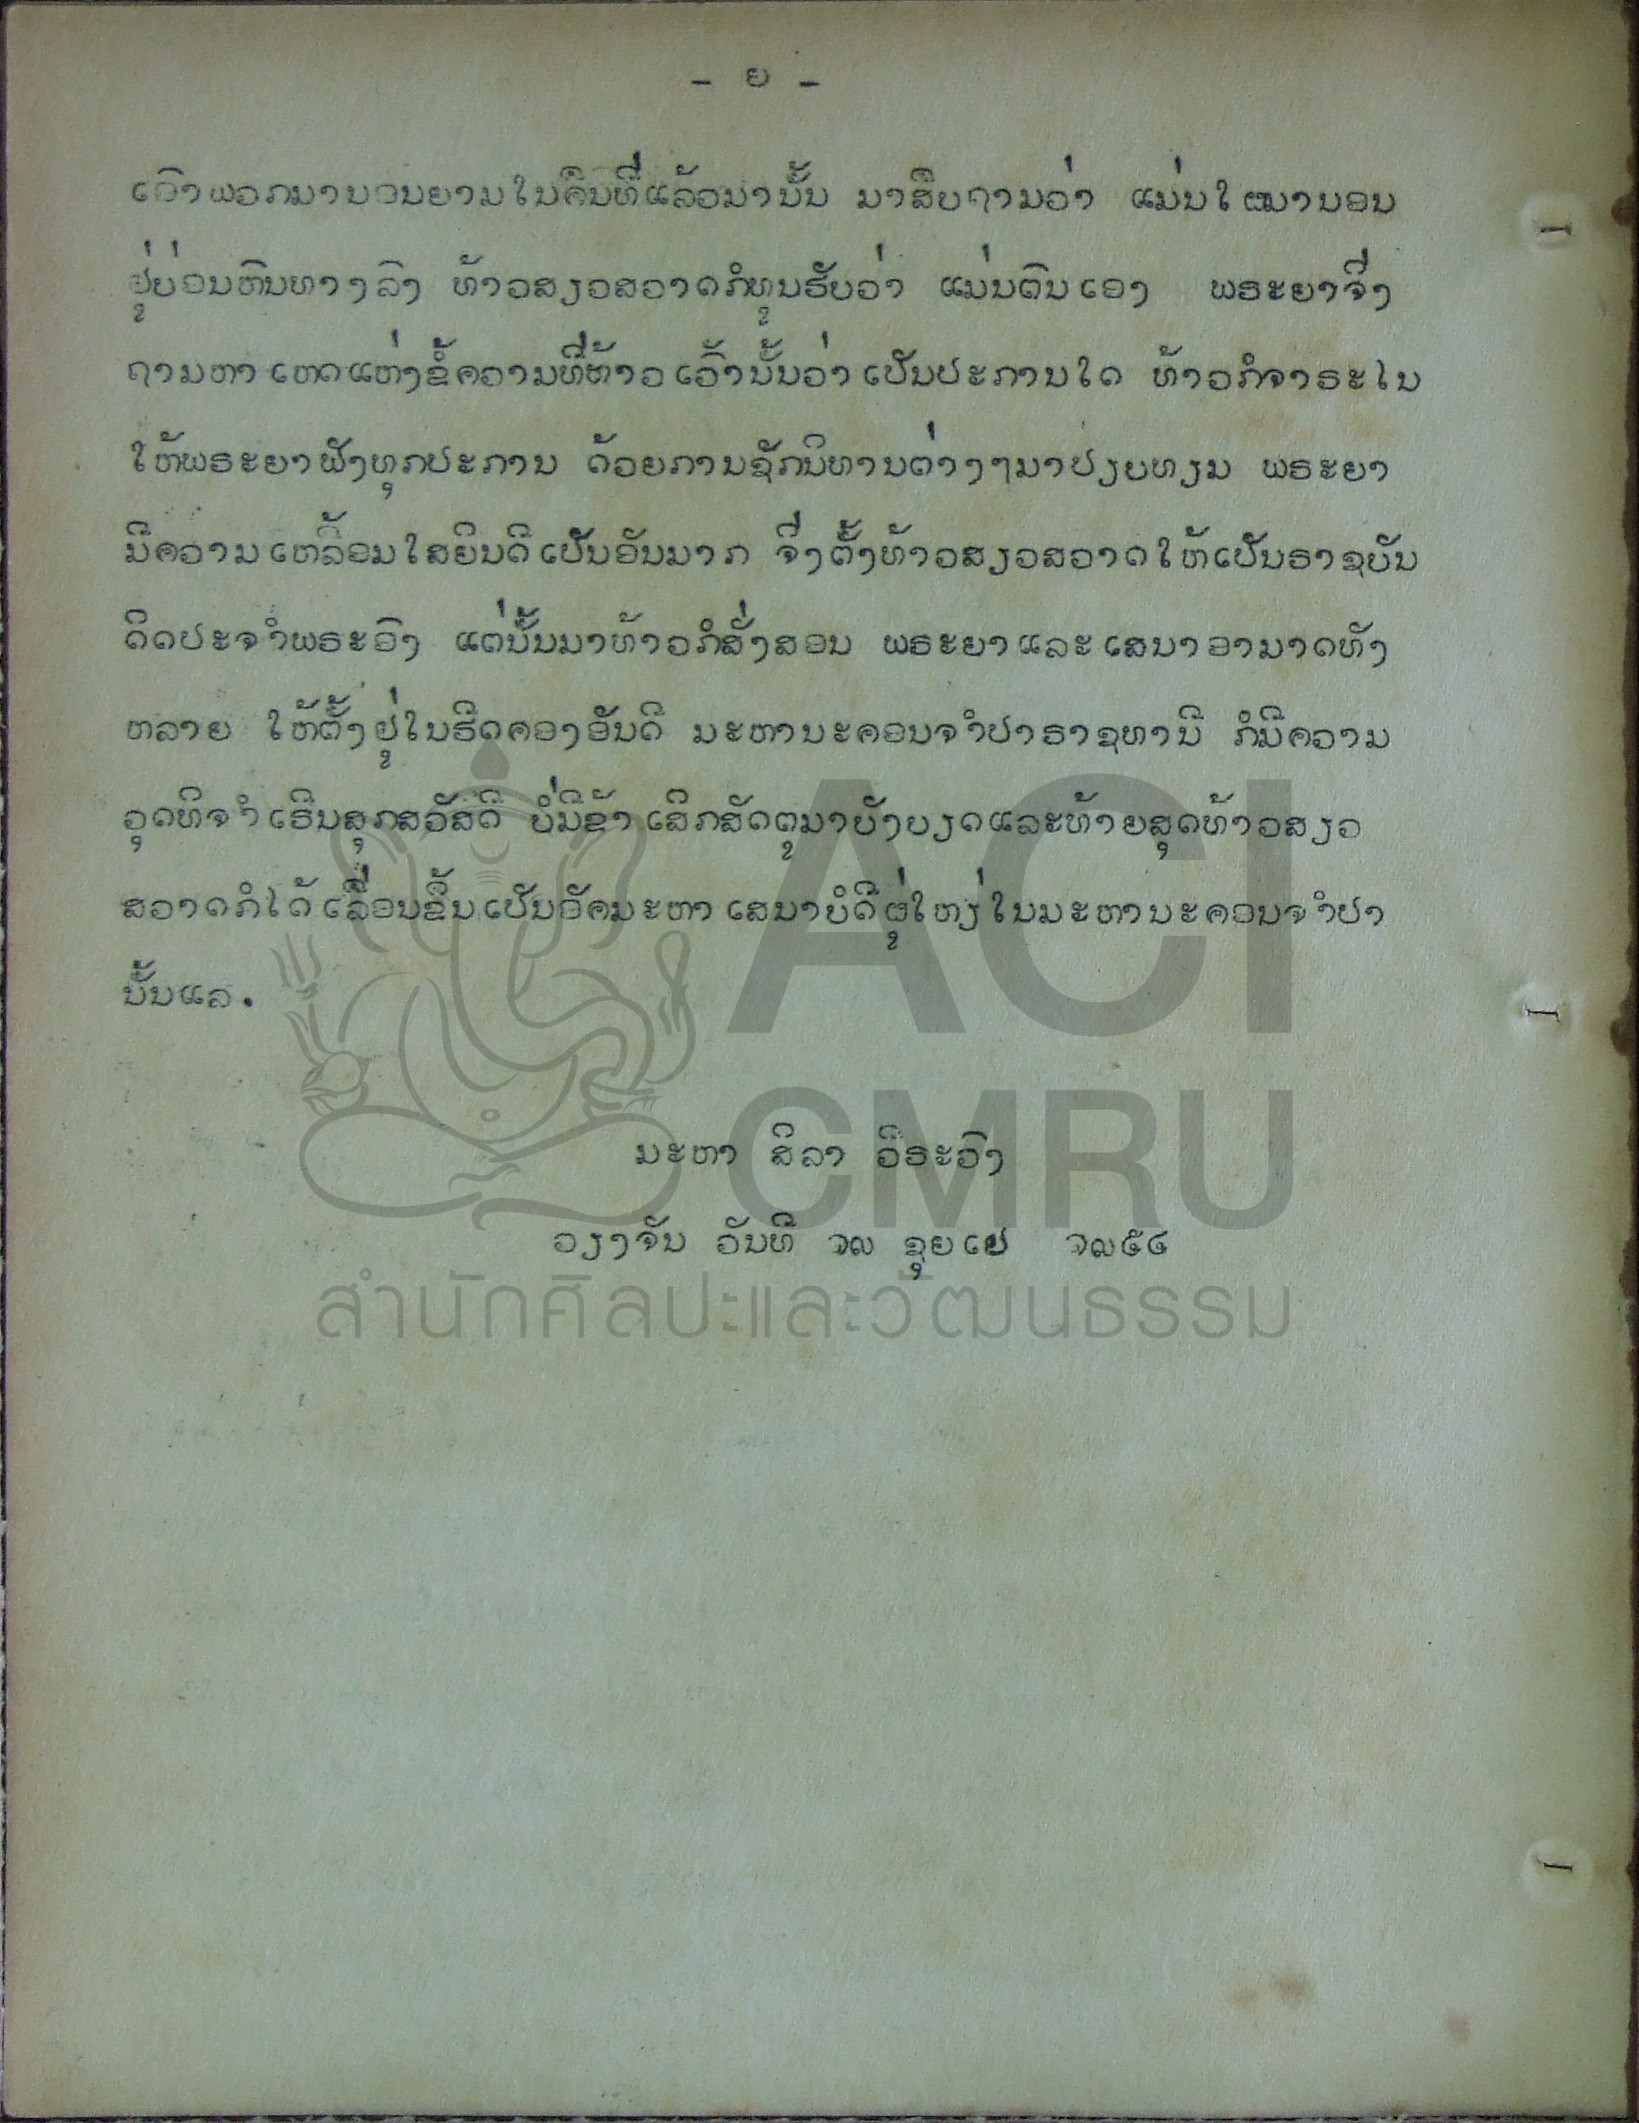 - ຍ -
ເອົາພວກມານອນຍາມໃນຄືນທີ່ແລ້ວມານັ້ນ ມາສືບຖາມວ່າ ແມ່ນໃຜມານອນ
ຢູ່ບ່ອນຫີນທາງລົງ ທ້າວສຽວສວາດກໍທູນຮັບວ່າ ແມ່ນຕົນເອງ ພຣະຍາຈຶ່ງ
ຖາມຫາເຫດແຫ່ງຂໍ້ຄວາມທີ່ທ້າວເວົ້ານັ້ນວ່າເປັນປະການໃດ ທ້າວກໍຈາຣະໄນ
ໃຫ້ພຣະຍາຟັງທຸກປະການ ດ້ວຍການຊັກນິທານຕ່າງໆມາປຽບທຽມ ພຣະຍາ
ມີຄວາມເຫລື້ອມໃສຍິນດີເປັນອັນມາກ ຈຶ່ງຕັ້ງທ້າວສຽວສວາດໃຫ້ເປັນຣາຊບັນ
ດິດປະຈຳພຣະອົງ ແຕ່ນັ້ນມາທ້າວກໍສັ່ງສອນ ພຣະຍາແລະເສນາອາມາດທັງ
ຫລາຍ ໃຫ້ຕັ້ງຢູ່ໃນຮີດຄອງອັນດີ ມະຫານະຄອນຈຳປາຣາຊທານີ ກໍມີຄວາມ
ວຸດທິຈຳເຣີນສຸກສວັສດີ ບໍ່ມີຂ້າເສິກສັດຕູມາບັງບຽດແລະທ້າຍສຸດທ້າວສຽວ
ສວາດກໍໄດ້ເລື່ອນຂື້ນເປັນອັຄມະຫາເສນາບໍດີຜູ່ໃຫຽ່ໃນມະຫານະຄອນຈຳປາ
ນັ້ນແລ.
ມະຫາ ສິລາ ວີຣະວົງ
ວຽງຈັນ ວັນທີ ໑໙ ຊຸຍເຢ ໑໙໕໔
ACI
CMRU
สำนักศิลปะและวัฒนธรรม